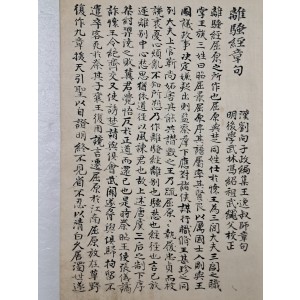 離騷經章句
漢劉向子政編集王逸叔師章句
明後學武林馮紹祖繩武父校正
離騷經屈原之所作也屈原與楚同姓仕於懷王為三閭大夫三閭之職
掌王族三姓曰昭屈景屈原序其譜屬率其賢良以厲國士入則與王
圖議政事決定嫌疑出則監察群下應對諸侯謀行職脩王甚珍之同
列大夫上官靳尚妬害其能共譖毀之王乃疏屈原屈原執履忠貞而被
讒衺憂心煩亂不知所愬乃作離騷經離別也騷愁也經徑也言己放
逐離別中心愁思猶依道徑以風諫君也故上述唐虞三后之制下序
桀紂羿澆之敗冀君覺悟反於正道而還己也是時秦昭王使張儀譎
詐懷王令絕齊交又使誘楚請與俱會武關遂脅與俱歸拘留不
遣卒客死於秦其子襄王復用讒言遷屈原於江南屈原放在草野
復作九章援天引聖以自證明終不見省不忍以清白久居濁世遂